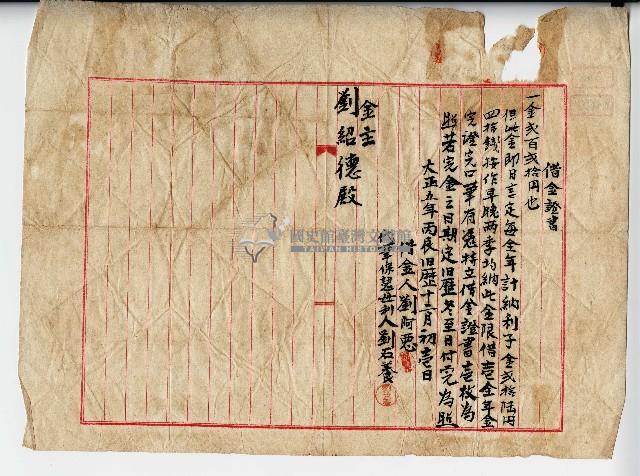 借金證書
一金弍百弍拾円也
但此金即日言定每全年計納利子金弍拾陆円
四拾錢按作早晚兩季均納此金限借壱全年金
完證完口筆有憑特立借金證書壱枚為
照若完金之日期定旧歷冬至日付完為照
大正五年丙辰旧歷十二月初壱日
借金人劉阿惡
保認母利人劉石養
金主
劉紹德殿
國史館臺灣文獻館
TAIWAN HISTORICA